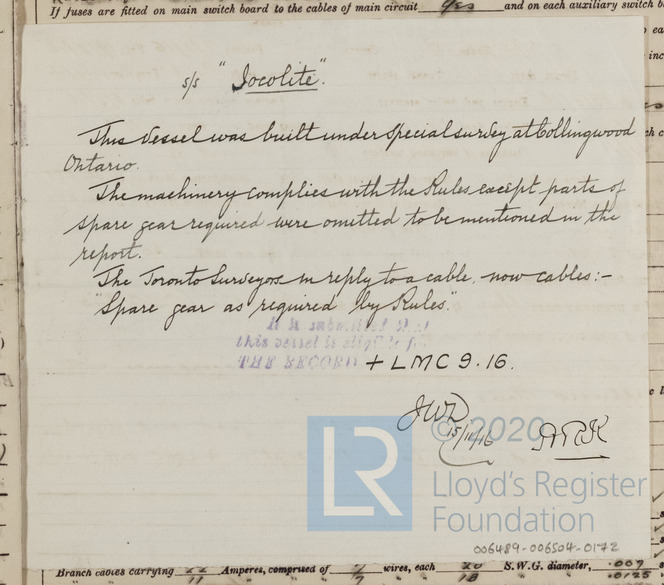 If fuses are fitted on main switch board to the cables of main circuit yes and on each auxiliary switch b
s/s "Iocolite".
This Vessel was built under special survey at Collingwood
Ontario.
The machinery complies with the Rules except parts of
spare gear required were omitted to be mentioned in the
report.
The Toronto Surveyors in reply to a cable, now cables:-
"Spare gear as required by Rules."
It is submitted that
this vessel is eligible for
THE RECORD + LMC 9.16.
JWD
15/11/16
© 2020
LR
Lloyd's Register
Foundation
006489-006504-0172
Branch cables carrying 22 Amperes, comprised of 7 wires, each 20 S.W.G. diameter, .007
11 7 18 .0125